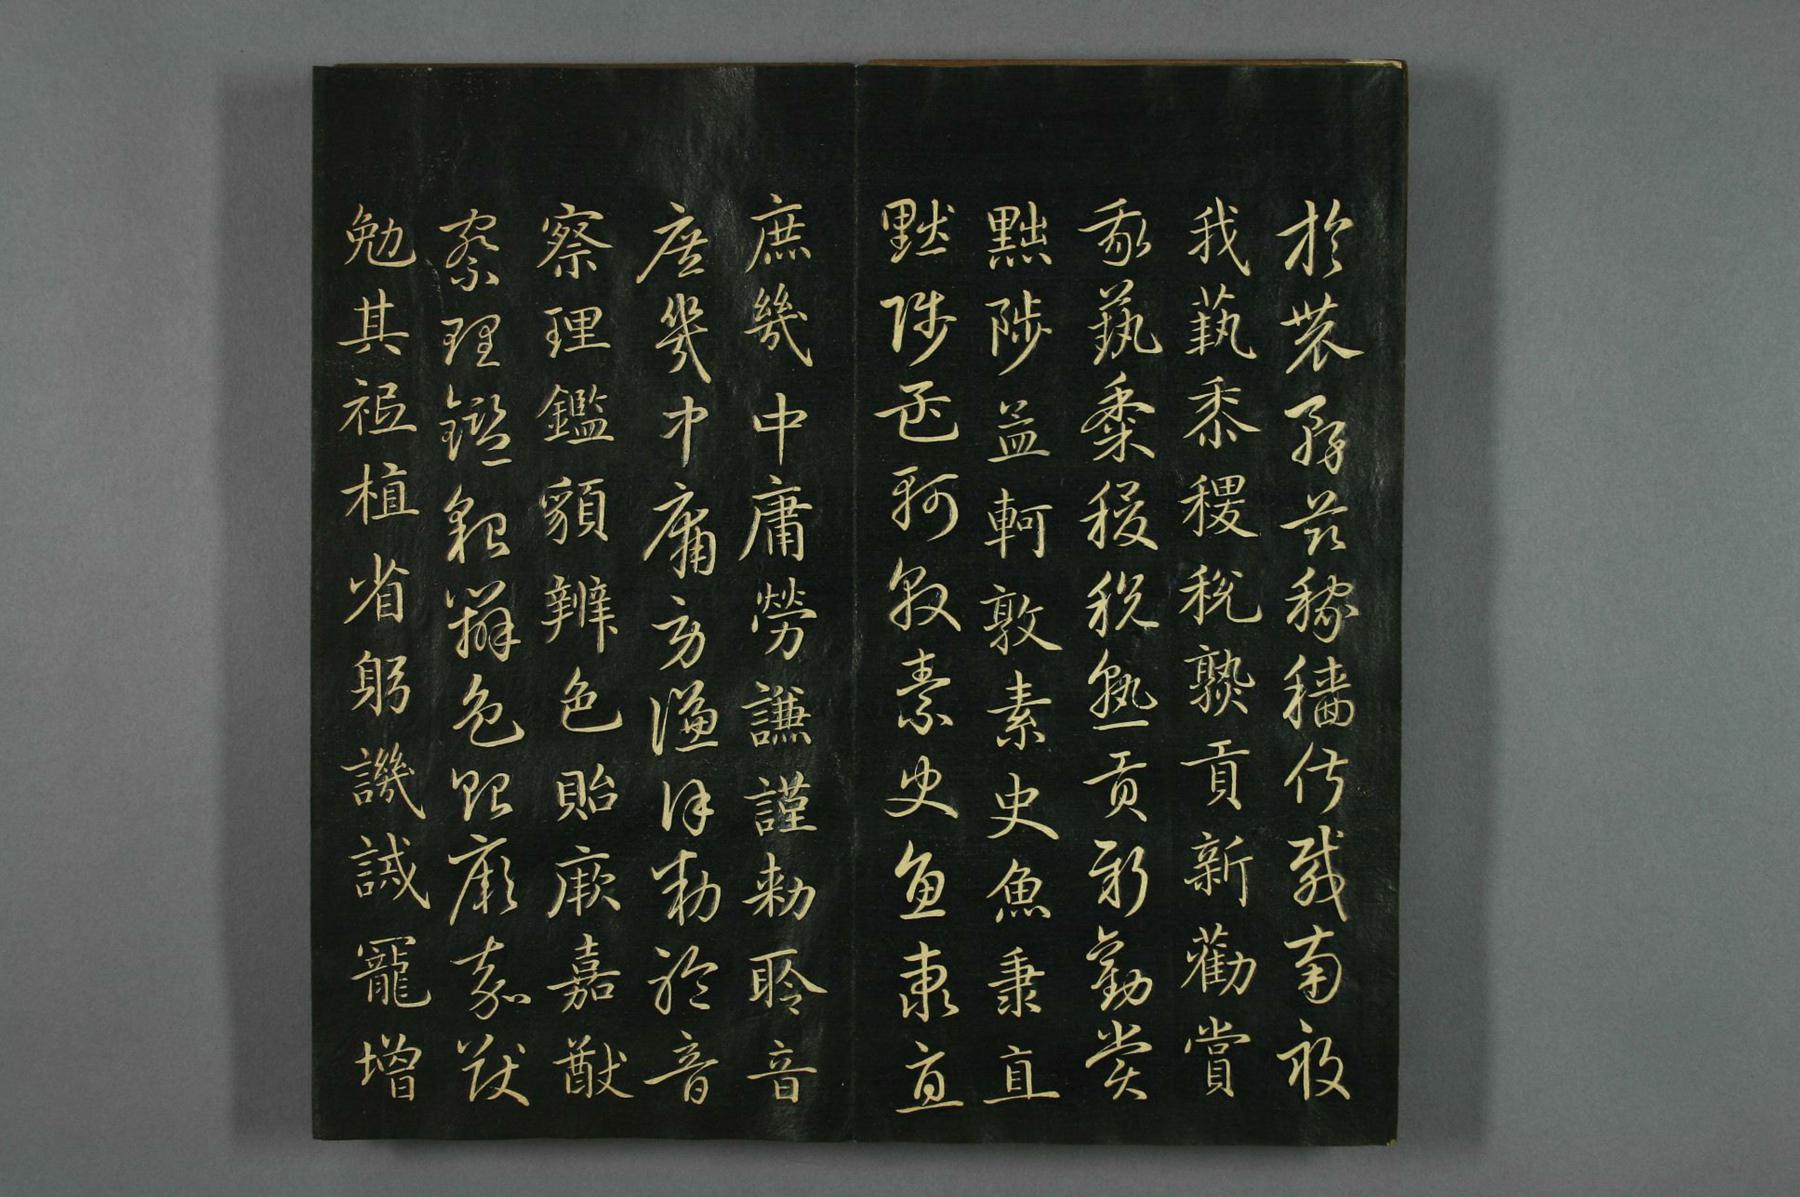 於農務茲稼穡俶載南畝
我蓺黍稷稅熟貢新勸賞
我蓺黍稷稅熟貢新勸賞
黜陟孟軻敦素史魚秉直
黜陟孟軻敦素史魚秉直
庶幾中庸勞謙謹勑聆音
庶幾中庸勞謙謹勑聆音
察理鑑貌辨色貽厥嘉猷
察理鑑貌辨色貽厥嘉猷
勉其祗植省躬譏誡寵增